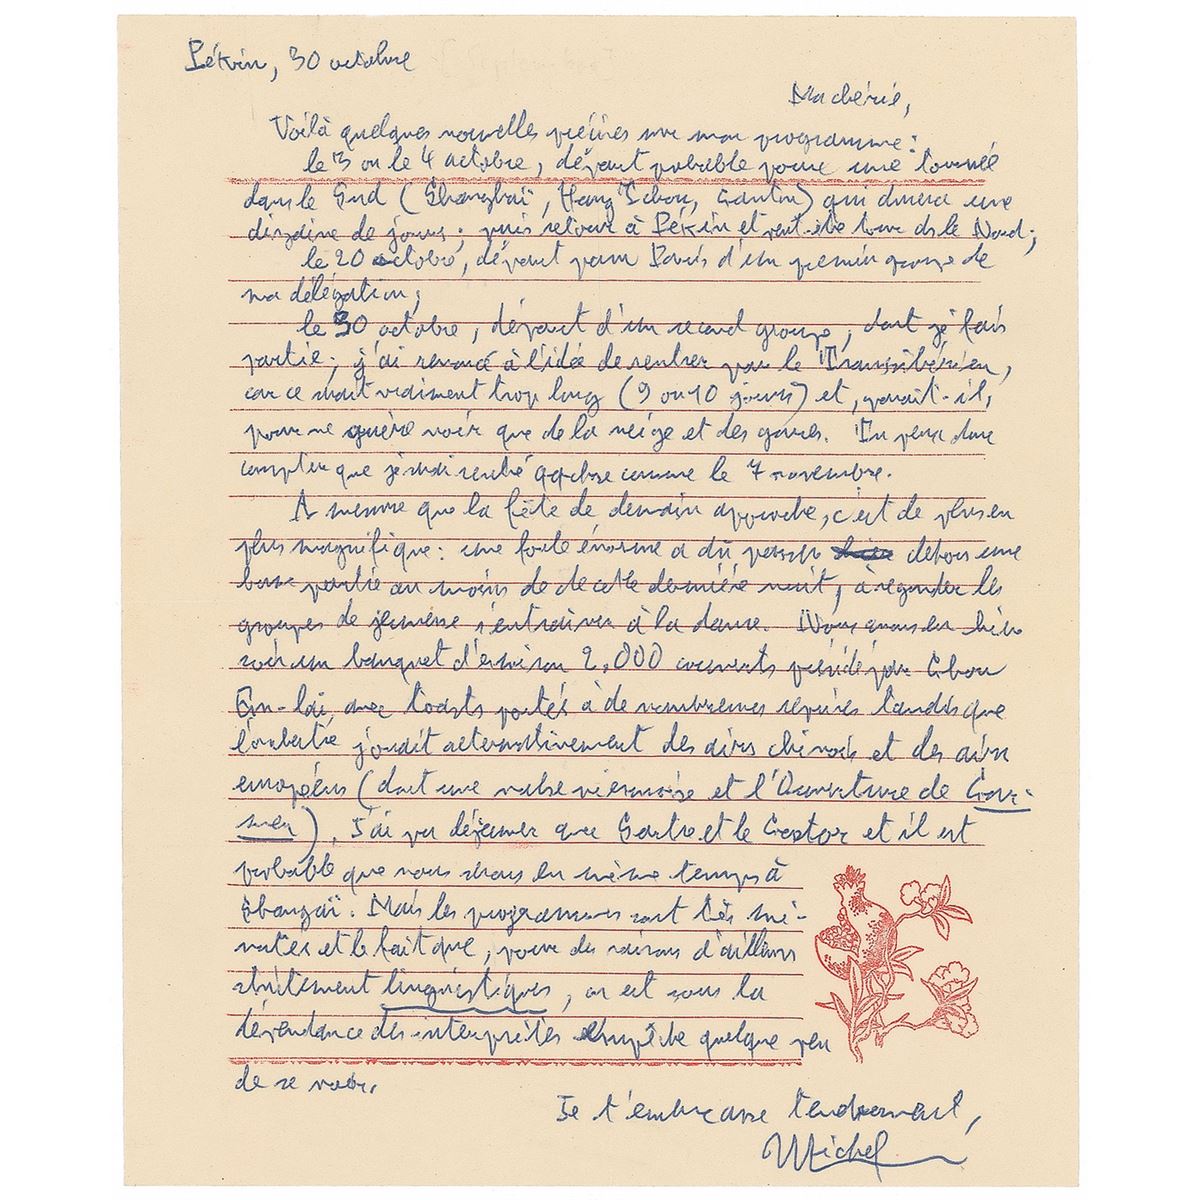 Pékin, 30 octobre
Ma chérie,
Voilà quelques nouvelles précises sur mon programme :
le 3 ou le 4 octobre, départ probable pour une tournée
dans le Sud (Shanghaï, Hang Tchou, Canton) qui durera une
dizaine de jours ; puis retour à Pékin et peut-être tour ds le Nord ;
le 20 octobre, départ pour Paris d'un premier groupe de
ma délégation ;
le 30 octobre, départ d'un second groupe, dont je fais
partie ; j'ai renoncé à l'idée de rentrer par le Transsibérien,
car ce serait vraiment trop long (9 ou 10 jours) et, paraît-il,
pour ne guère voir que de la neige et des gares. Tu peux donc
compter que je serai rentré quelque comme le 7 novembre.
A mesure que la fête de demain approche, c'est de plus en
plus magnifique : une foule énorme a dû passer dehors une
bonne partie au moins de de cette dernière nuit, à regarder les
groupes de jeunesse s'entraîner à la danse. Nous avons eu hier
soir un banquet d'environ 2.000 couverts présidé par Chou
En-laï, avec toasts portés à de nombreuses reprises tandis que
l'orchestre jouait alternativement des airs chinois et des airs
européens (dont une valse viennoise et l'Ouverture de Car-
men). J'ai pu déjeuner avec Sartre et le Castor et il est
probable que nous serons en même temps à
Shangaï. Mais les programmes sont très mi-
nutés et le fait que, pour des raisons d'ailleurs
strictement linguistiques, on est sous la
dépendance des interprètes empêche quelque peu
de se voir.
Je t'embrasse tendrement,
Michel